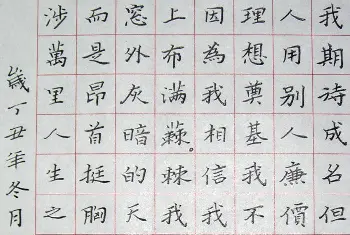 我期待成名但
人用别人廉價
理想奠基我不
因為我相信我
上布满棘我
窓外灰暗的天
而是昂首挺胸
涉萬里人生之
歲丁丑年冬月